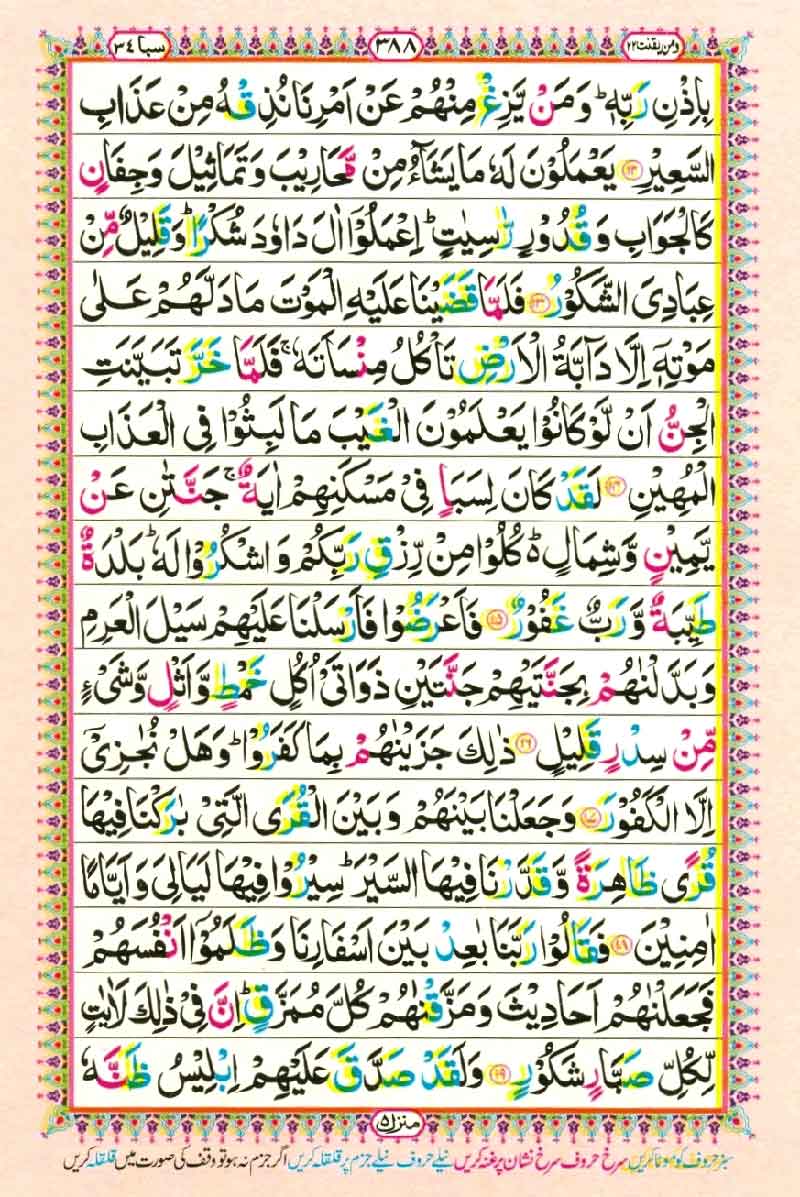 ومن یقنت ۲۲
۳۸۸
سبا ۳۴
بِاِذْنِ رَبِّهٖ ؕ وَ مَنْ یَّزِغْ مِنْهُمْ عَنْ اَمْرِنَا نُذِقْهُ مِنْ عَذَابِ
السَّعِیْرِ ﴿۱۲﴾ یَعْمَلُوْنَ لَهٗ مَا یَشَآءُ مِنْ مَّحَارِیْبَ وَ تَمَاثِیْلَ وَ جِفَانٍ
كَالْجَوَابِ وَ قُدُوْرٍ رّٰسِیٰتٍ ؕ اِعْمَلُوْۤا اٰلَ دَاوٗدَ شُكْرًا ؕ وَ قَلِیْلٌ مِّنْ
عِبَادِیَ الشَّكُوْرُ ﴿۱۳﴾ فَلَمَّا قَضَیْنَا عَلَیْهِ الْمَوْتَ مَا دَلَّهُمْ عَلٰى
مَوْتِهٖۤ اِلَّا دَآبَّةُ الْاَرْضِ تَاْكُلُ مِنْسَاَتَهٗ ۚ فَلَمَّا خَرَّ تَبَیَّنَتِ
الْجِنُّ اَنْ لَّوْ كَانُوْا یَعْلَمُوْنَ الْغَیْبَ مَا لَبِثُوْا فِی الْعَذَابِ
الْمُهِیْنِ ﴿۱۴﴾ لَقَدْ كَانَ لِسَبَاٍ فِیْ مَسْكَنِهِمْ اٰیَةٌ ۚ جَنَّتٰنِ عَنْ
یَّمِیْنٍ وَّ شِمَالٍ ؕ۬ كُلُوْا مِنْ رِّزْقِ رَبِّكُمْ وَ اشْكُرُوْا لَهٗ ؕ بَلْدَةٌ
طَیِّبَةٌ وَّ رَبٌّ غَفُوْرٌ ﴿۱۵﴾ فَاَعْرَضُوْا فَاَرْسَلْنَا عَلَیْهِمْ سَیْلَ الْعَرِمِ
وَ بَدَّلْنٰهُمْ بِجَنَّتَیْهِمْ جَنَّتَیْنِ ذَوَاتَیْ اُكُلٍ خَمْطٍ وَّ اَثْلٍ وَّ شَیْءٍ
مِّنْ سِدْرٍ قَلِیْلٍ ﴿۱۶﴾ ذٰلِكَ جَزَیْنٰهُمْ بِمَا كَفَرُوْا ؕ وَ هَلْ نُجٰزِیْۤ
اِلَّا الْكَفُوْرَ ﴿۱۷﴾ وَ جَعَلْنَا بَیْنَهُمْ وَ بَیْنَ الْقُرَى الَّتِیْ بٰرَكْنَا فِیْهَا
قُرًى ظَاهِرَةً وَّ قَدَّرْنَا فِیْهَا السَّیْرَ ؕ سِیْرُوْا فِیْهَا لَیَالِیَ وَ اَیَّامًا
اٰمِنِیْنَ ﴿۱۸﴾ فَقَالُوْا رَبَّنَا بٰعِدْ بَیْنَ اَسْفَارِنَا وَ ظَلَمُوْۤا اَنْفُسَهُمْ
فَجَعَلْنٰهُمْ اَحَادِیْثَ وَ مَزَّقْنٰهُمْ كُلَّ مُمَزَّقٍ ؕ اِنَّ فِیْ ذٰلِكَ لَاٰیٰتٍ
لِّكُلِّ صَبَّارٍ شَكُوْرٍ ﴿۱۹﴾ وَ لَقَدْ صَدَّقَ عَلَیْهِمْ اِبْلِیْسُ ظَنَّهٗ
منزل ۵
سبز حروف کو موٹا کریں سرخ حروف سرخ نشان پر غنہ کریں نیلے حروف نیلے جزم پر قلقلہ کریں اگر جزم نہ ہو تو وقف کی صورت میں قلقلہ کریں